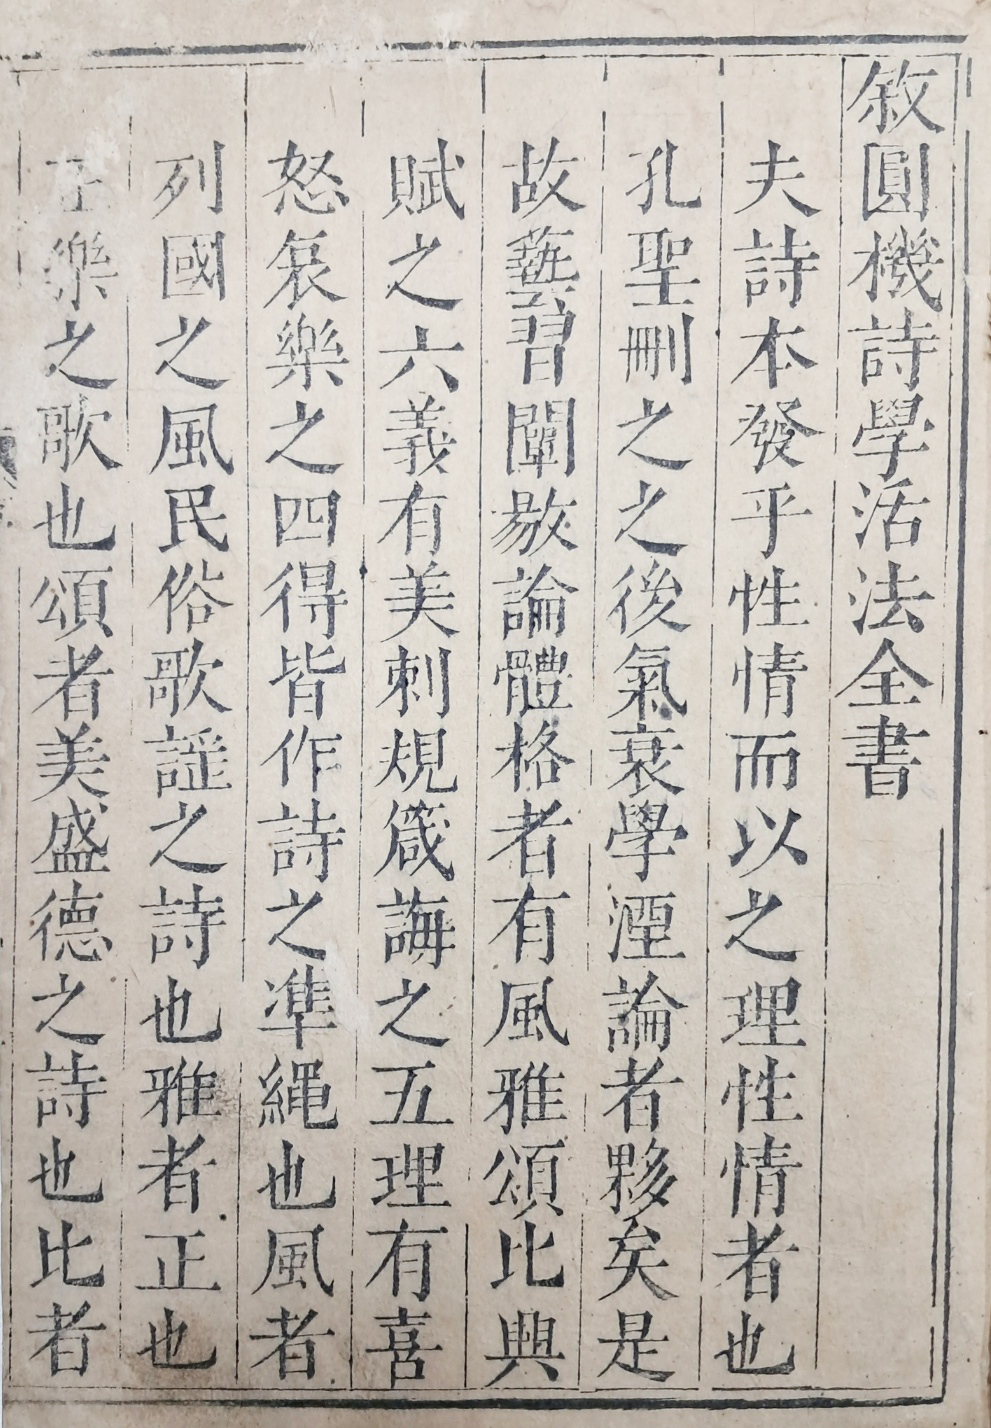 敘圓機詩學活法全書
夫詩本發乎性情而以之理性情者也
孔聖刪之之後氣衰學湮論者夥矣是
故藝習闡敭論體格者有風雅頌比興
賦之六義有美刺規箴誨之五理有喜
怒哀樂之四得皆作詩之準繩也風者
列國之風民俗歌謡之詩也雅者正也
正樂之歌也頌者美盛德之詩也比者